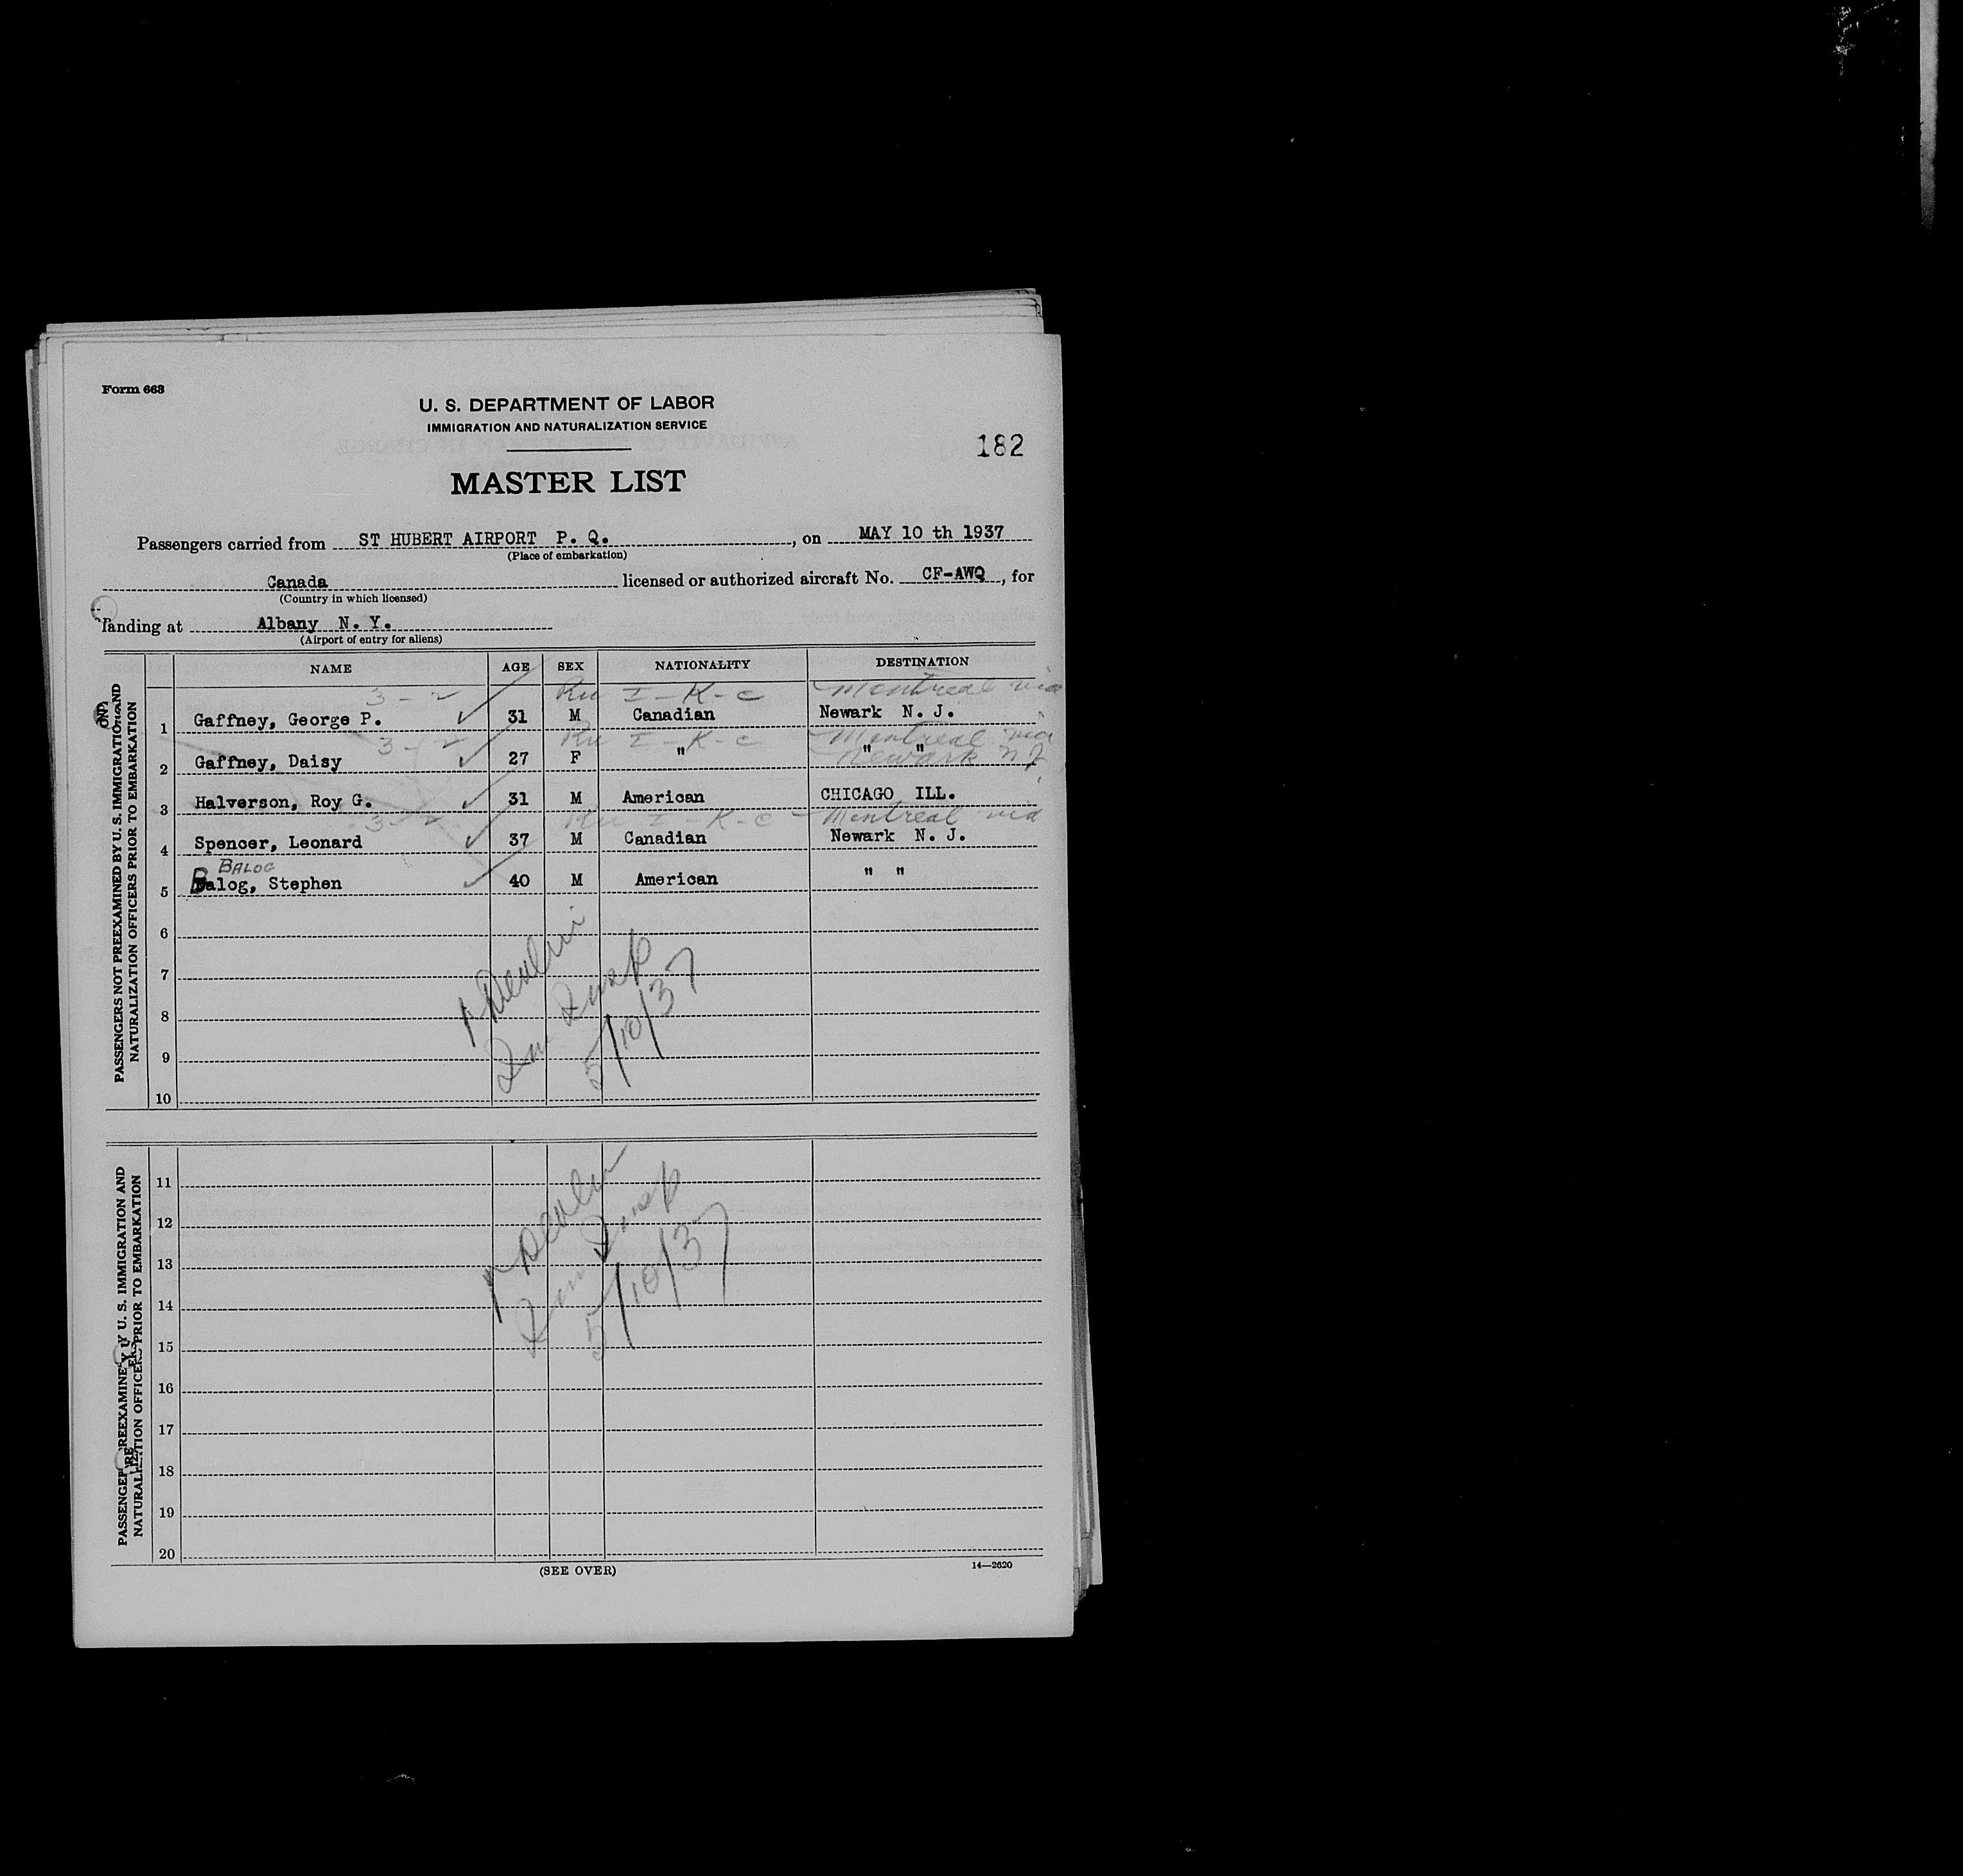 Form 663
U. S. DEPARTMENT OF LABOR
IMMIGRATION AND NATURALIZATION SERVICE
182
MASTER LIST
Passengers carried from ST HUBERT AIRPORT P. Q. , on MAY 10 th 1937
(Place of embarkation)
Canada licensed or authorized aircraft No. CF-AWQ , for
(Country in which licensed)
landing at Albany N. Y.
(Airport of entry for aliens)
NAME AGE SEX NATIONALITY DESTINATION
PASSENGERS NOT PREEXAMINED BY U. S. IMMIGRATION AND
NATURALIZATION OFFICERS PRIOR TO EMBARKATION
3 - 2 I - K - c Montreal via
1 Gaffney, George P. ✓ 31 M Canadian Newark N. J.
3 - 2 I - K - c Montreal via
2 Gaffney, Daisy ✓ 27 F " " "
Newark N J
3 Halverson, Roy G. ✓ 31 M American CHICAGO ILL.
3 - 2 I - K - c Montreal via
4 Spencer, Leonard ✓ 37 M Canadian Newark N. J.
BALOG
5 Balog, Stephen ✓ 40 M American " "
6
7
8
9
10
Insp
5/10/37
PASSENGERS PREEXAMINED BY U. S. IMMIGRATION AND
NATURALIZATION OFFICERS PRIOR TO EMBARKATION
11
12
13
14
15
16
17
18
19
20
Insp
5/10/37
(SEE OVER)
14—2620